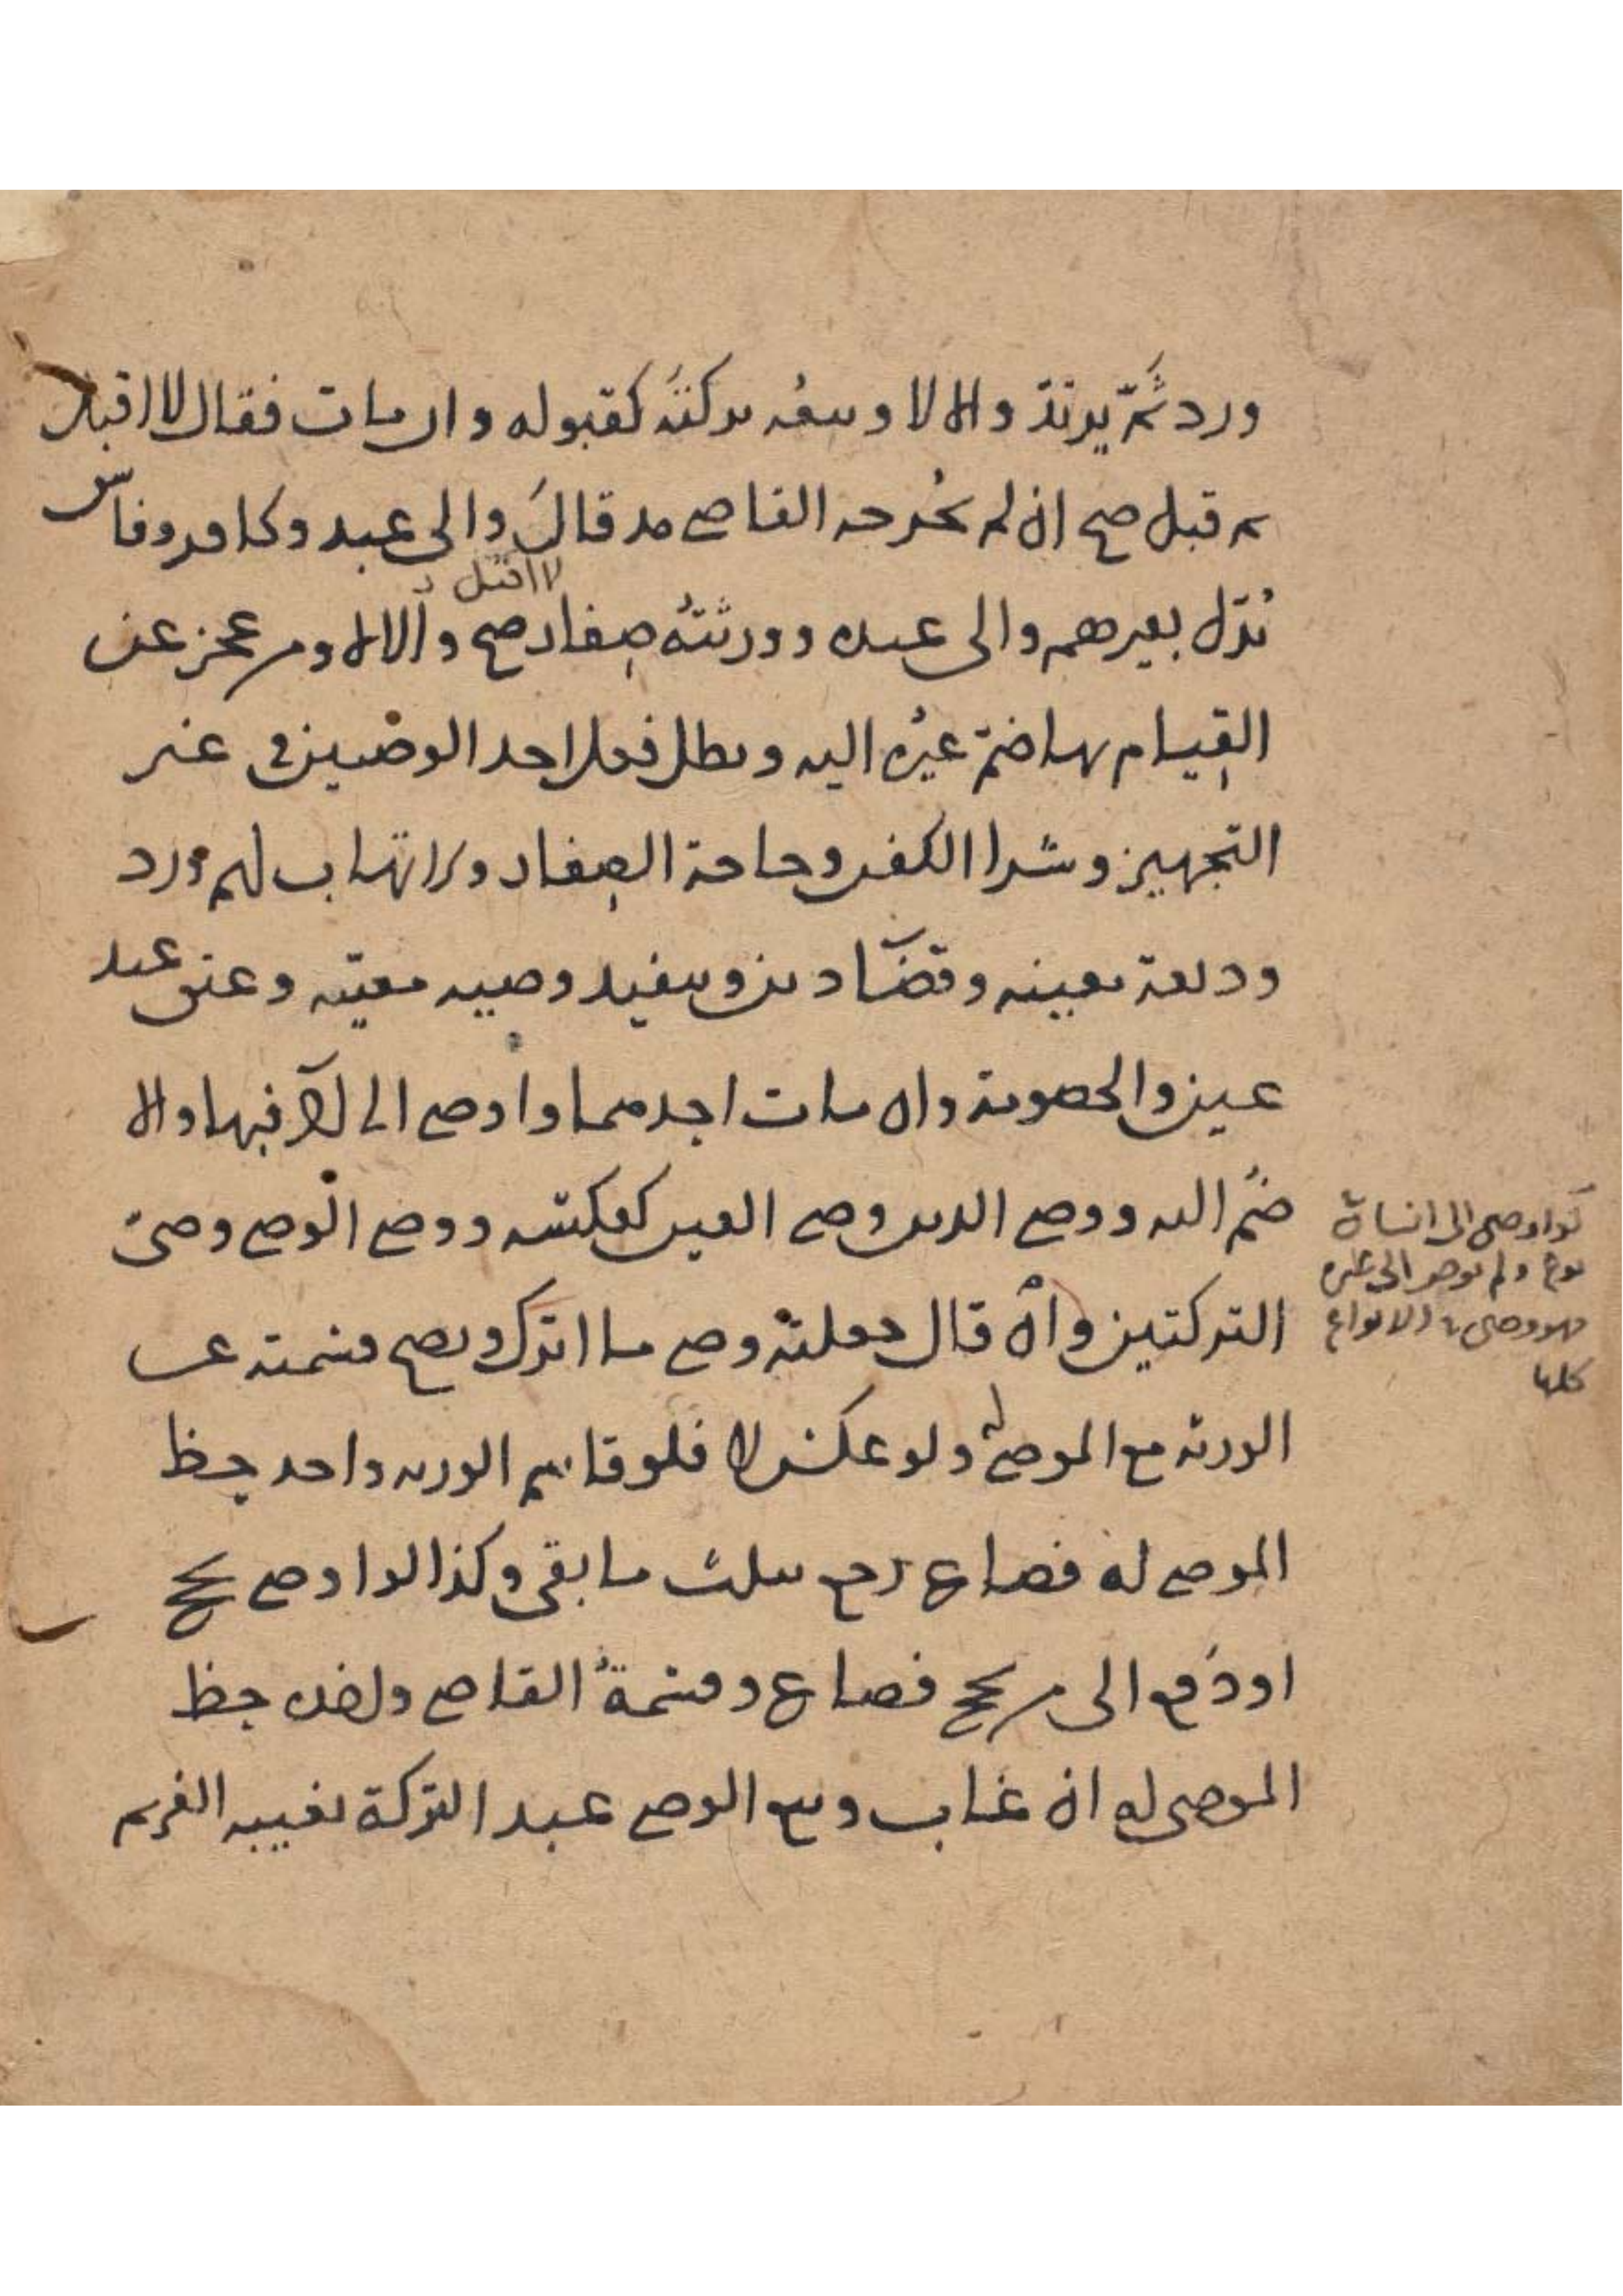 ورد ثَمّ يرتدّ والا لا وبيعُه تركتَه كقبوله وان مات فقال لا اقبل
ثم قبل صح ان لم يخرجه القاضي مذ قالَ والى عبد وكافر وفاسق
لا اقبل
بُدّل بغيرهم والى عبده وورثتُه صغار صح والا لا ومن عجز عن
القيام بها ضمّ غيرُه اليه وبطل فعل احد الوصيين في غير
التجهيز وشرا الكفن وحاجة الصغار والاتهاب لهم ورد
وديعة معينه وقضآ دين وتنفيذ وصيه معيّنه وعتق عبد
عين والخصومة وان مات احدهما واوصى الى الآخر فبها والا
ضُم اليه ووصي الدين وصي العين كعكسه ووصي الوصي وصيّ
التركتين وان قال جعلته وصي ما اترك ويصح قسمته عن
الورثه مع الموصى له ولو عكس لا فلو قاسم الورثه واخذ حظ
الموصى له فضاع رجع بثلث ما بقى وكذا لو اوصى بحج
او دُفع الى من يحج فضاع وقسمةُ القاضي واخذه حظ
الموصى له ان غاب وبيع الوصي عبد التركة بغيبه الغريم
لو اوصى الى انسان في
نوع ولم يوص الى غيره
فهو وصي في الانواع
كلها